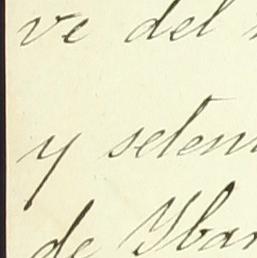 ve del
y seten
de Ybar